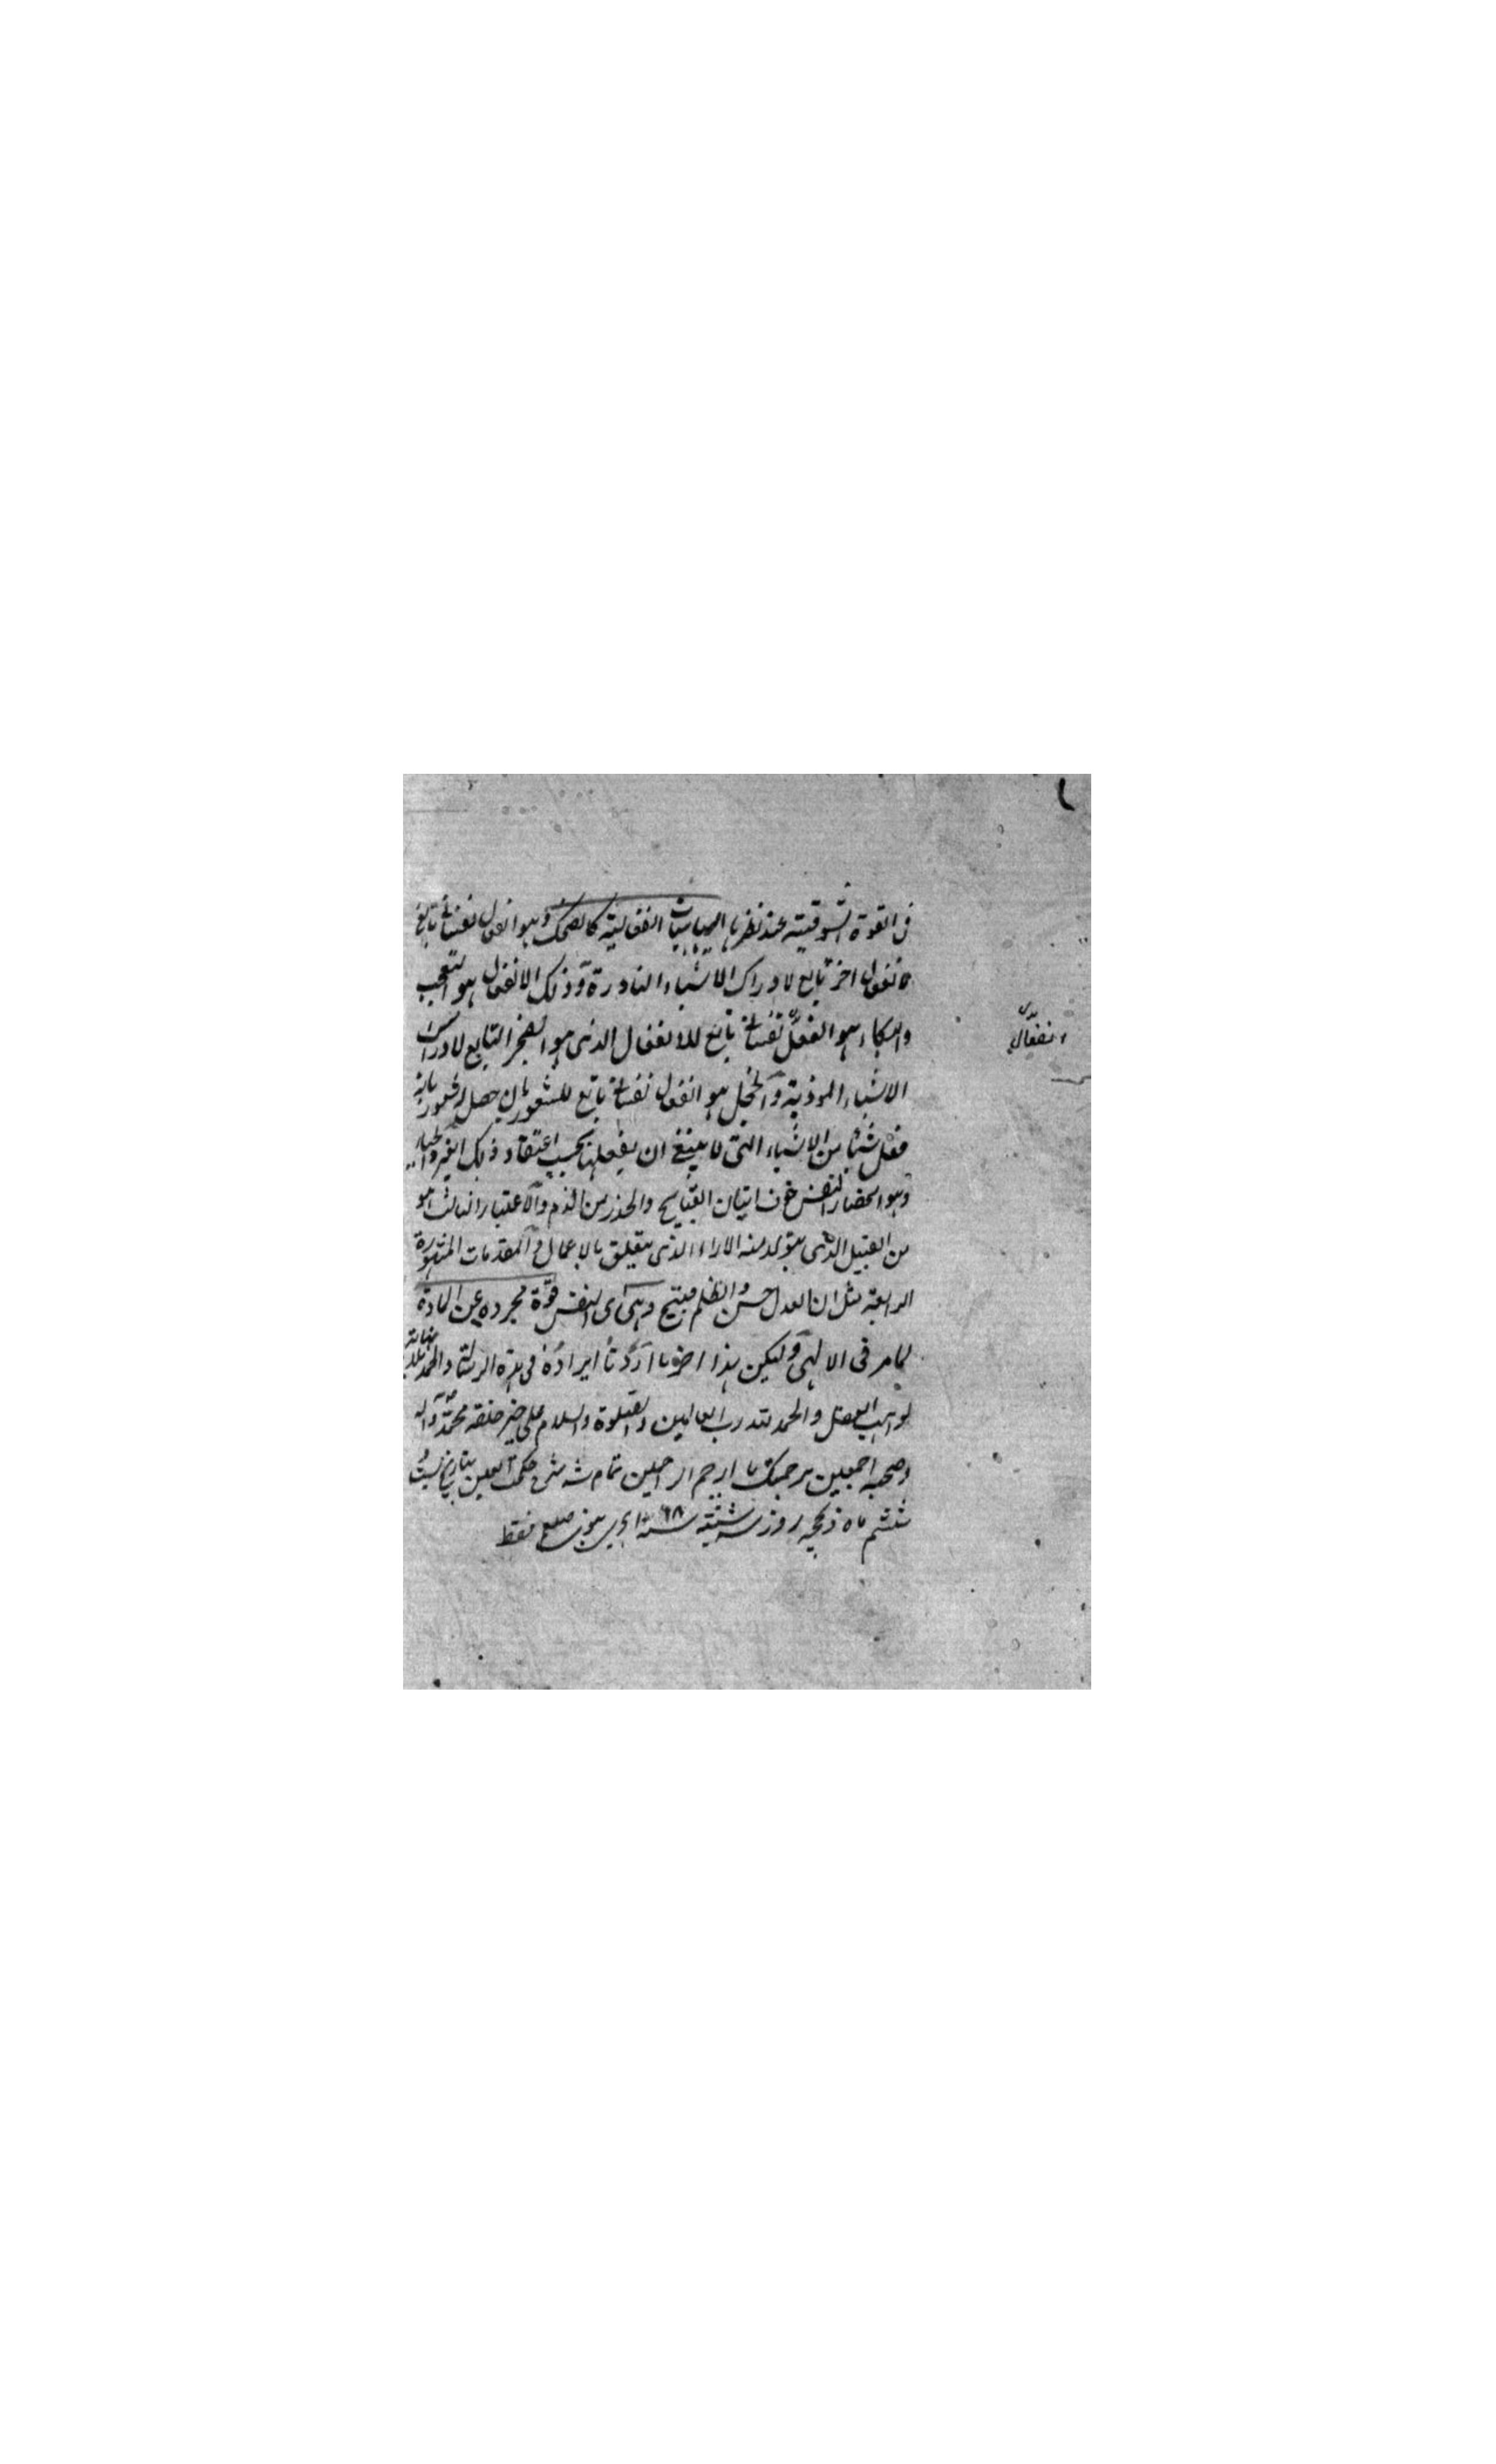 فى القوة الشوقية عند نظرها الهيئات انفعالية كالضحك وهو انفعال نفسانى تابع
لانفعال اخر تابع لادراك الاشياء النادرة وذلك الانفعال هو التعجب
والبكاء هو انفعال نفسانى تابع للانفعال الذى هو الضجر التابع لادراك
الاشياء الموذية والخجل هو انفعال نفسانى تابع للشعور بان حصل لغيره شعور بانه
فعل شيئا من الاشياء التى لا ينبغى ان يفعلها بحسب اعتقاد ذلك الغير والحياء
وهو انحصار النفس خوف اتيان القبايح والحذر من الذم والاعتبار الثالث هو
من القبيل الذى يتولد منه الاراء الذى يتعلق بالاعمال والمقدمات المشهورة
الرابعة مثل ان العدل حسن والظلم قبيح وهى اى النفس قوة مجرده عن المادة
لما مر فى الالهى وليكن هذا اخر ما اردنا ايراده فى هذه الرسالة والحمد لله
لواهب العقل والحمد لله رب العالمين والصلوة والسلام على خير خلقه محمد واله
وصحبه اجمعين برحمتك يا ارحم الراحمين تمام شد شرح حكمت العين بتاريخ بست
ششم ماه ذيحجه روز سه شنبه سنه ۶۸ فقط
انفعال